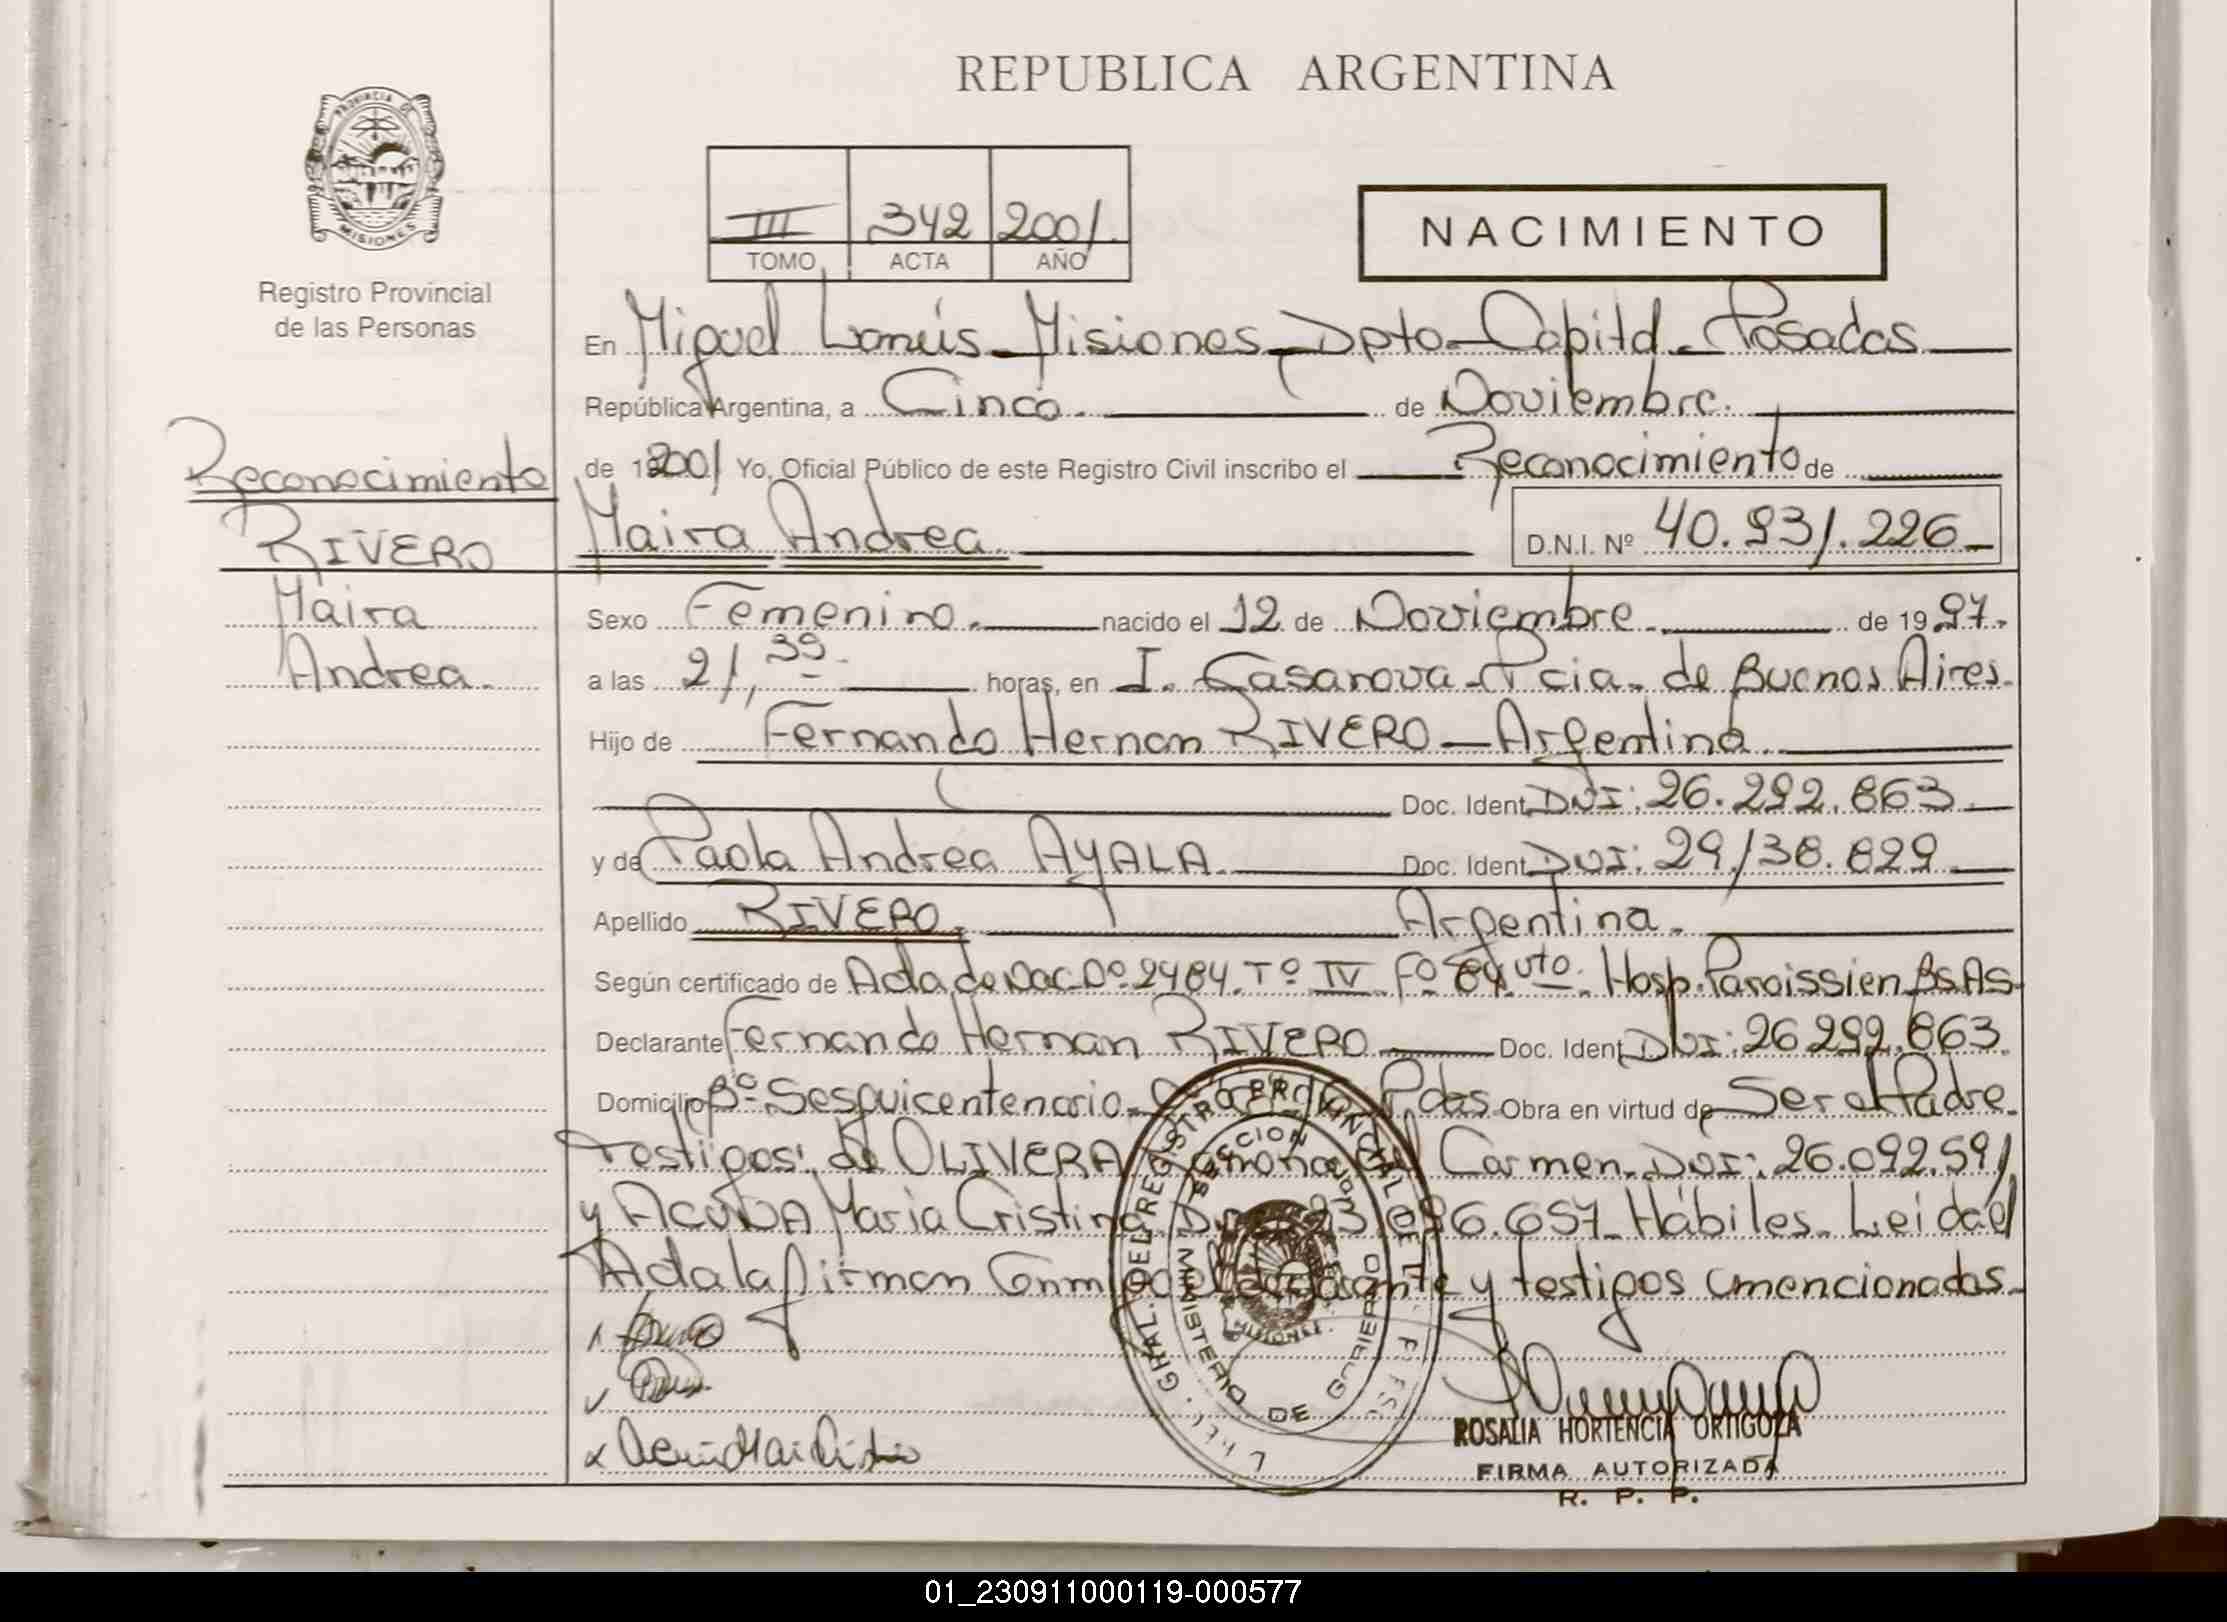 REPUBLICA ARGENTINA
PROVINCIA DE
MISIONES
Registro Provincial
de las Personas
III 342 2001.
TOMO ACTA AÑO
NACIMIENTO
En Miguel Lanús - Misiones - Dpto - Capital - Posadas
República Argentina, a Cinco. de Noviembre.
Reconocimiento
de 2001 Yo, Oficial Público de este Registro Civil inscribo el Reconocimiento de
RIVERO
Maira Andrea. D.N.I. Nº 40.931.226
Maira
Sexo Femenino. nacido el 12 de Noviembre. de 1997.
Andrea.
a las 21,39 horas, en I. Casanova - Pcia. de Buenos Aires.
Hijo de Fernando Hernan RIVERO - Argentina
Doc. Ident. DNI: 26.292.863
y de Paola Andrea AYALA. Doc. Ident. DNI: 29.138.829
Apellido RIVERO. Argentina.
Según certificado de Acta de Nac. Nº 2484. Tº IV Fº 84 vto. Hosp. Paroissien Bs As.
Declarante Fernando Hernan RIVERO Doc. Ident. DNI: 26.292.863.
Domicilio Bº Sesquicentenario. Pdas Obra en virtud de Ser el Padre.
testigos: de OLIVERA Ramona del Carmen. DNI: 26.092.591
y ACUÑA María Cristina DNI 96.657 - Hábiles - Leida el
Acta la firman Conmigo el declarante y testigos mencionados.
ROSALIA HORTENCIA ORTIGOZA
FIRMA AUTORIZADA
R. P. P.
REGISTRO PROVINCIAL DE L
SECCION
MINISTERIO DE GOBIERNO
MISIONES
01_230911000119-000577